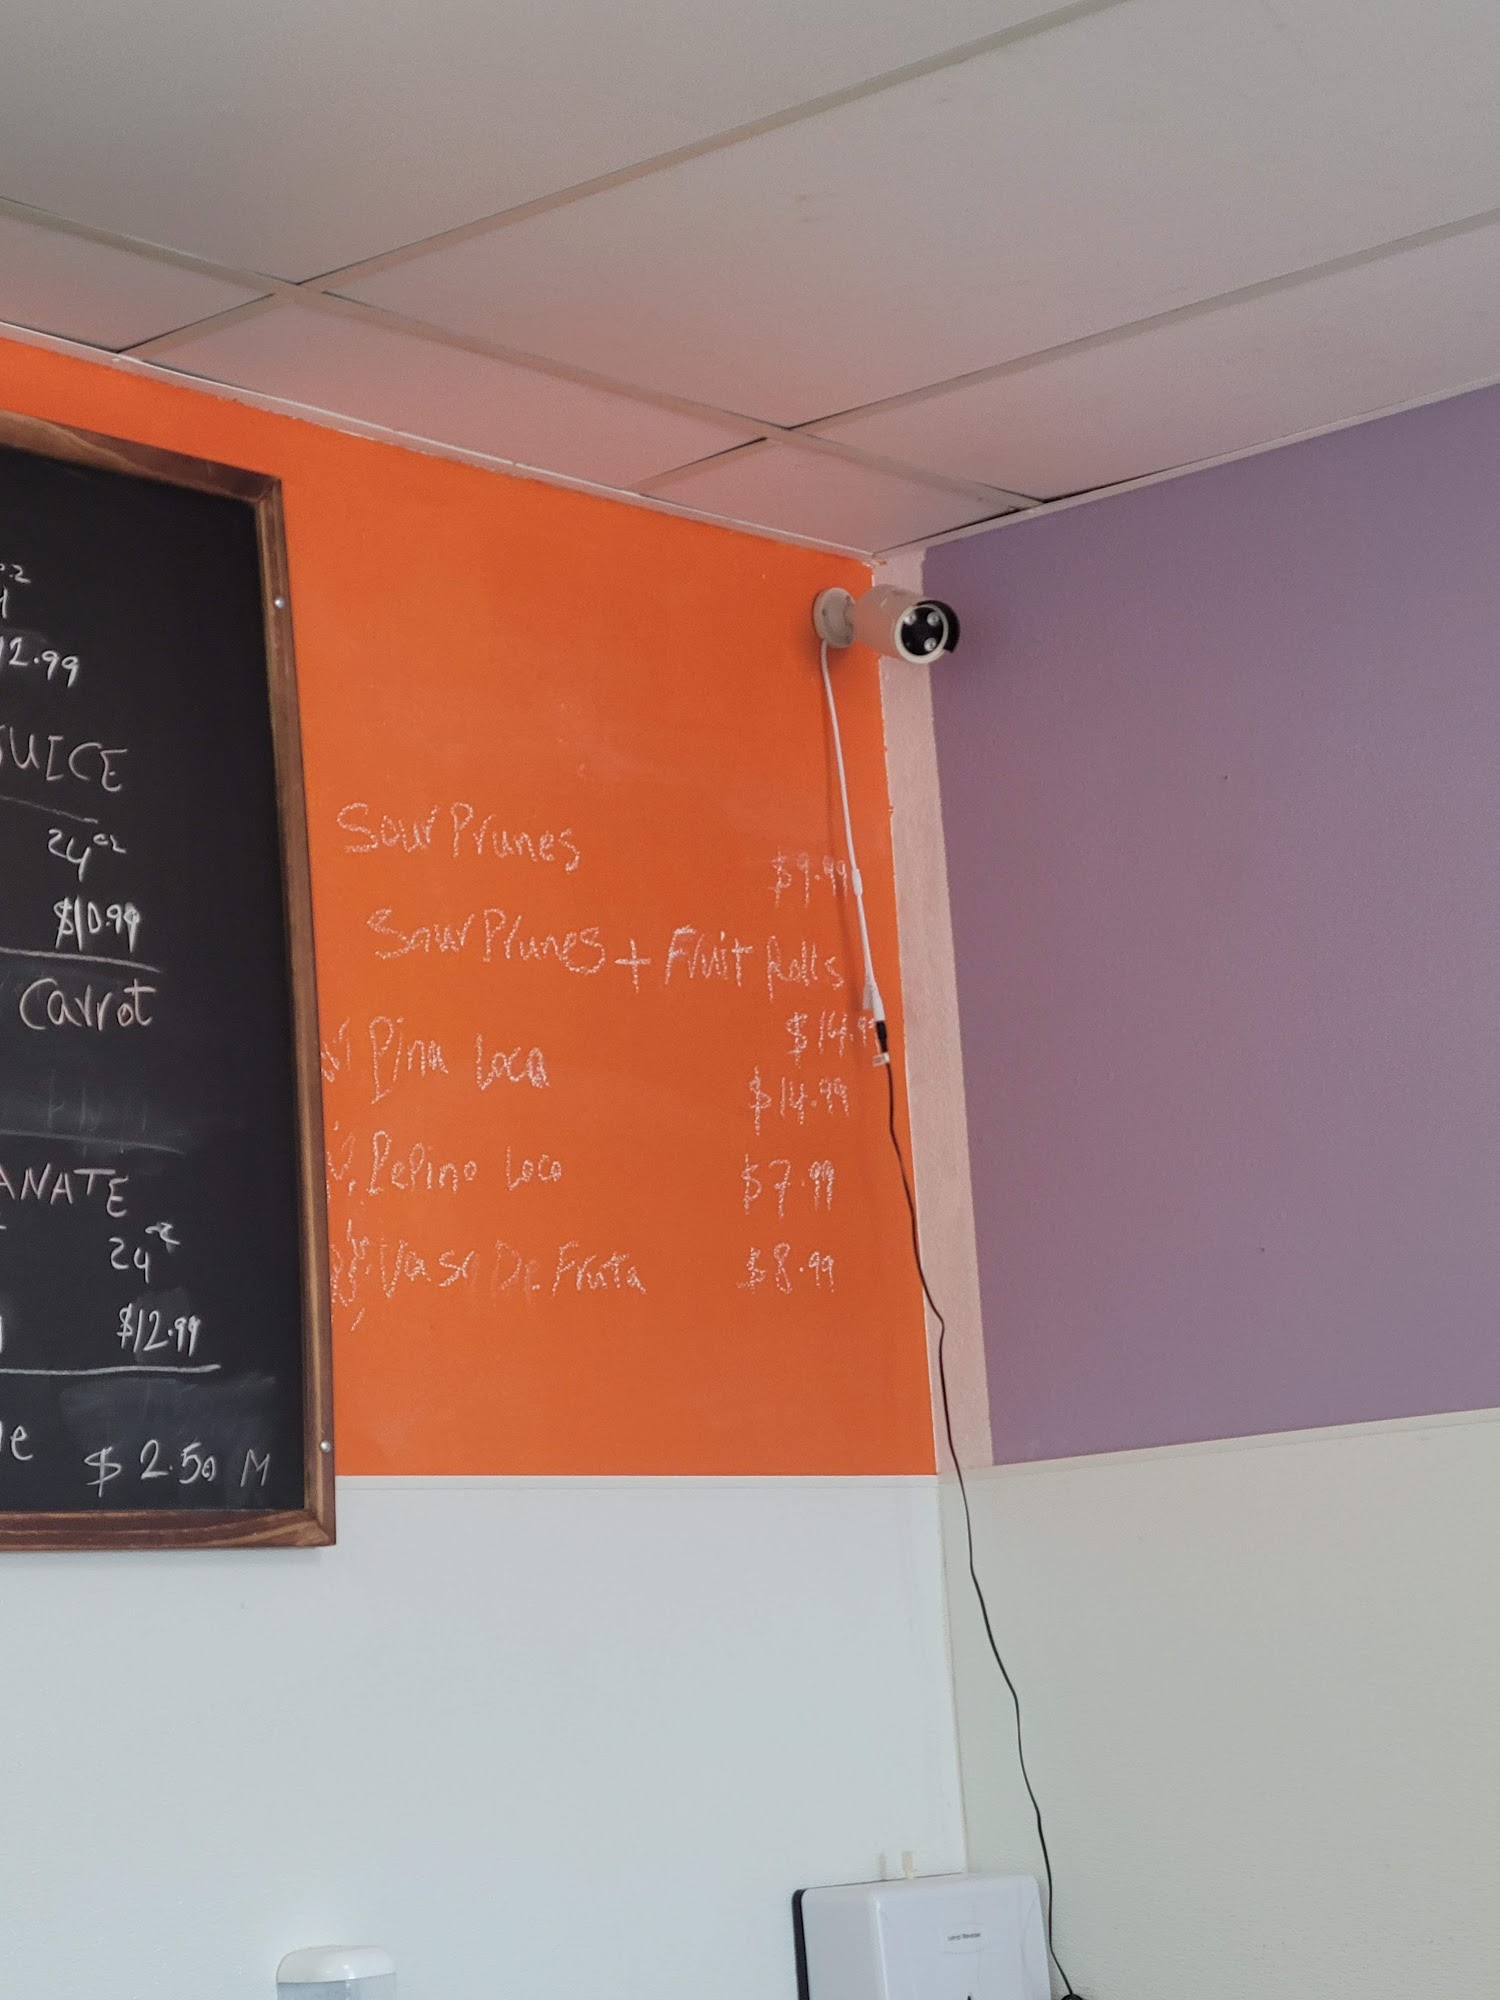 12.99
JUICE
24oz
$10.99
Carrot
ANATE
24oz
$12.99
$2.50 M
Sour Prunes
$9.99
Sour Prunes + Fruit Rolls
$14.99
Pina Loca
$14.99
Pepino Loco
$7.99
Vaso De Fruta
$8.99